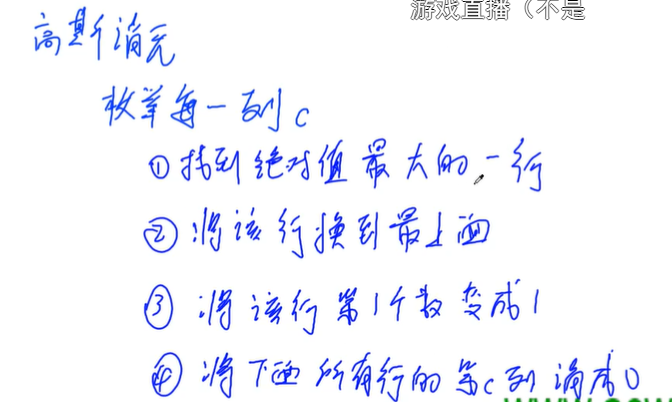 游戏直播（不是
高斯消元
枚举每一列c
①找到绝对值最大的一行
②将该行换到最上面
③将该行第1个数变成1
④将下面所有行的第c列消成0